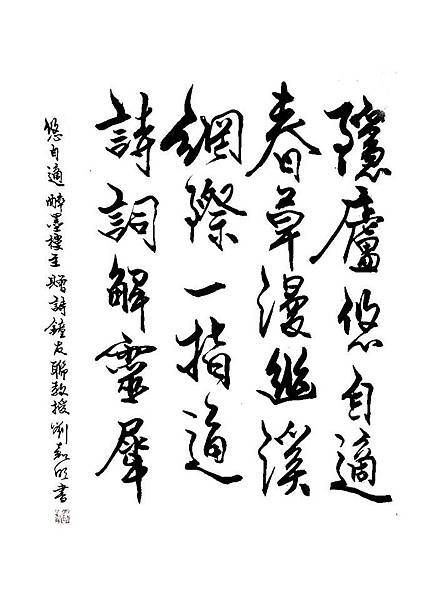 隱廬悠自適
春草漫幽溪
網際一指通
詩詞解靈犀
悠自適 醉墨樓主贈詩鐘友聯教授 劉 書